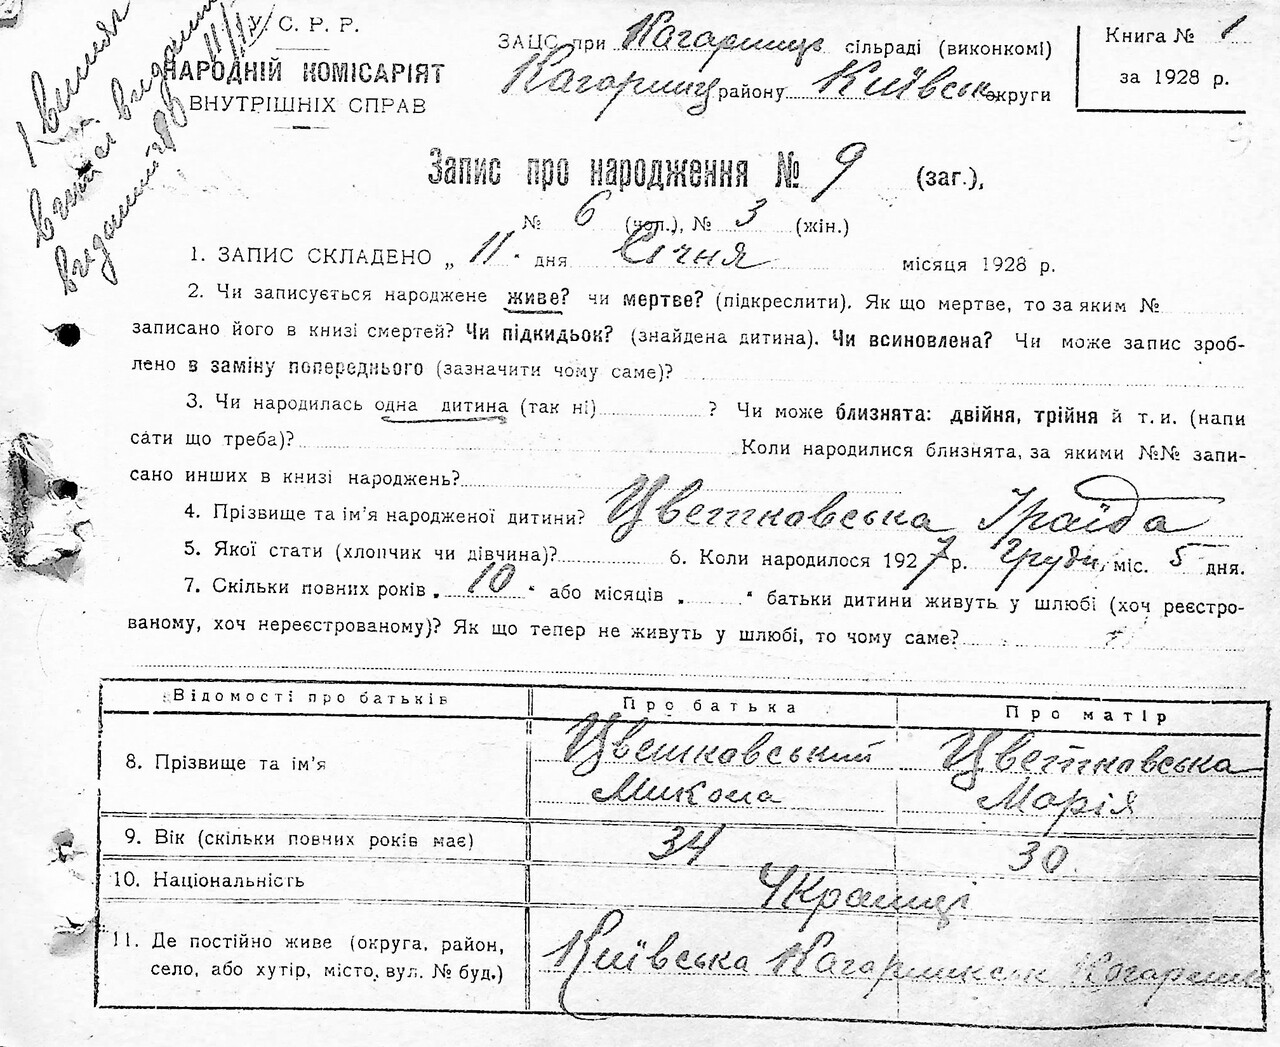 У. С. Р. Р.
НАРОДНІЙ КОМІСАРІЯТ
ВНУТРІШНІХ СПРАВ
ЗАЦС при Кагарлиць сільраді (виконкомі)
Кагарлиц району Київськ округи
Книга № 1
за 1928 р.
Запис про народження № 9 (заг.),
№ 6 (чол.), № 3 (жін.)
1. ЗАПИС СКЛАДЕНО „ 11 " дня Січня місяця 1928 р.
2. Чи записується народжене живе? чи мертве? (підкреслити). Як що мертве, то за яким №
записано його в книзі смертей? Чи підкидьок? (знайдена дитина). Чи всиновлена? Чи може запис зроб-
лено в заміну попереднього (зазначити чому саме)?
3. Чи народилась одна дитина (так ні) ? Чи може близнята: двійня, трійня й т. и. (напи
сати що треба)? Коли народилися близнята, за якими №№ запи-
сано инших в книзі народжень?
4. Прізвище та ім'я народженої дитини? Цветковська Іраїда
5. Якої стати (хлопчик чи дівчина)? 6. Коли народилося 1927 р. Грудн, міс. 5 дня.
7. Скільки повних років „ 10 " або місяців „ " батьки дитини живуть у шлюбі (хоч реєстро-
ваному, хоч нереєстрованому)? Як що тепер не живуть у шлюбі, то чому саме?
Відомості про батьків Про батька Про матір
8. Прізвище та ім'я Цветковський Микола Цветковська Марія
9. Вік (скільки повних років має) 34 30
10. Національність Українці
11. Де постійно живе (округа, район,
село, або хутір, місто, вул. № буд.) Київська Кагарлицьк Кагарлик